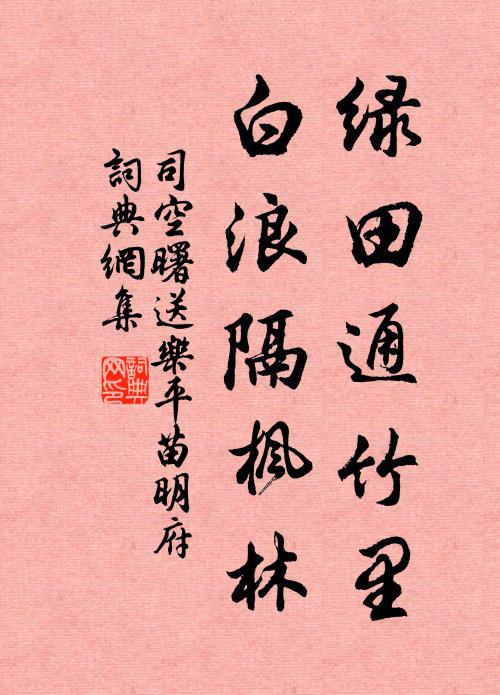 緑田通竹里
白浪隔楓林
司空曙送樂平苗明府
詞典網集
詞典網印